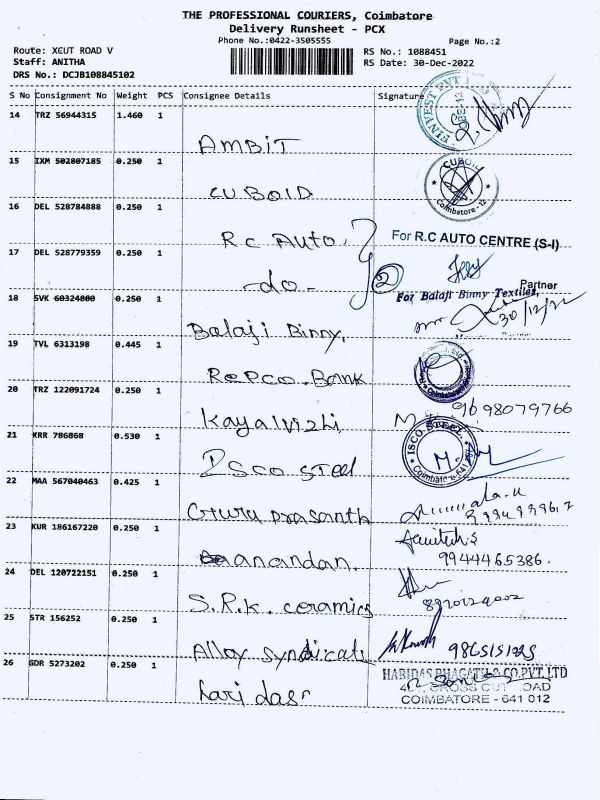 THE PROFESSIONAL COURIERS, Coimbatore
Delivery Runsheet - PCX
Phone No.:0422-3505555
Page No.:2
Route: XCUT ROAD V
RS No.: 1088451
Staff: ANITHA
RS Date: 30-Dec-2022
DRS No.: DCJB108845102
S No Consignment No Weight PCS Consignee Details Signature
14 TRZ 56944315 1.460 1
AMBIT
15 IXM 502807185 0.250 1
CUBOID
CUBOID
Coimbatore-12
16 DEL 528784888 0.250 1
R.c Auto.
For R.C AUTO CENTRE (S-I)
17 DEL 528779359 0.250 1
-do-
2
Partner
For Balaji Binny Textiles,
18 SVK 60324800 0.250 1
30/12/22
Balaji Binny,
19 TVL 6313198 0.445 1
Repco. Bank
20 TRZ 122091724 0.250 1
9698079766
Kayalvizhi
21 KRR 786868 0.530 1
ISCO STEEL
Isco Steel
22 MAA 567040463 0.425 1
Guru prasanth
23 KUR 186167220 0.250 1
anandan.
9944465386.
24 DEL 120722151 0.250 1
S.R.K. ceramics
25 STR 156252 0.250 1
Alloy syndicate
26 GDR 5273202 0.250 1
haridass
HARIDAS BHAGATH & CO.PVT.LTD
CROSS CUT ROAD
COIMBATORE - 641 012